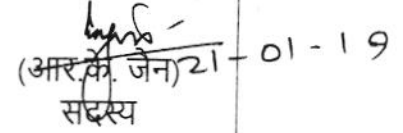 (आर.के. जैन) 21-01-19
सदस्य